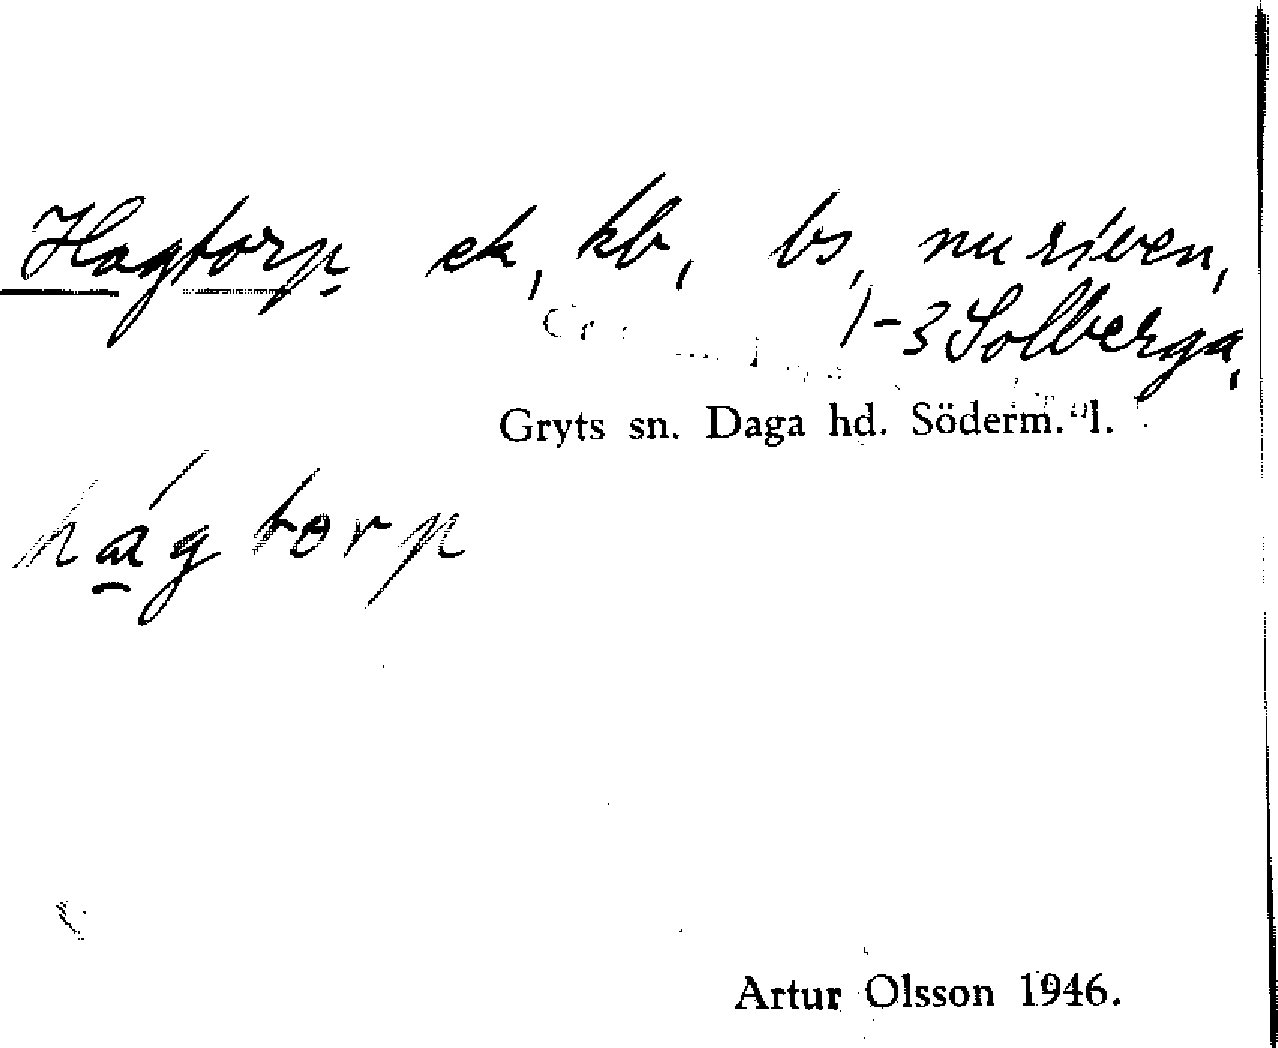 Hagtorp ek, kb, bs, nu riven,
1-3 Solberga,
Gryts sn. Daga hd. Söderm. l.
hágtorp
Artur Olsson 1946.